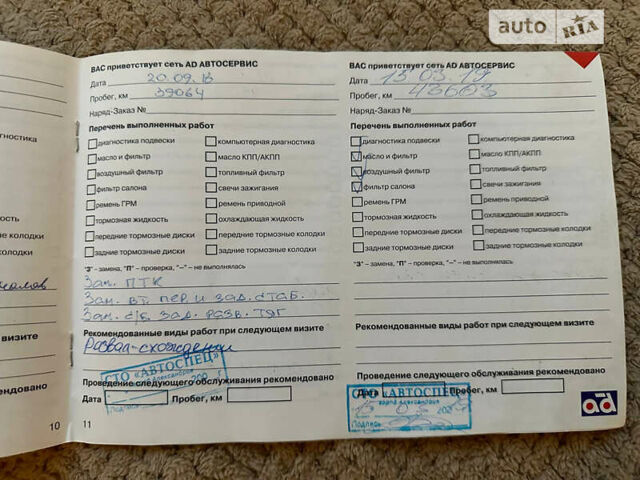 auto RIA
ВАС приветствует сеть AD АВТОСЕРВИС
Дата 20.09.18
Пробег, км 39064
Наряд-Заказ №
Перечень выполненных работ
диагностика подвески компьютерная диагностика
масло и фильтр масло КПП/АКПП
воздушный фильтр топливный фильтр
фильтр салона свечи зажигания
ремень ГРМ ремень приводной
тормозная жидкость охлаждающая жидкость
передние тормозные диски передние тормозные колодки
задние тормозные диски задние тормозные колодки
"З" – замена, "П" – проверка, "–" – не выполнялась
Зам. ПТК
Зам. вт. пер. и зад. стаб.
Зам. с/б. зад. разв. тяг
Рекомендованные виды работ при следующем визите
Развал-схождение
СТО «АВТОСПЕЦ»
Проведение следующего обслуживания рекомендовано
Дата Пробег, км
11
ВАС приветствует сеть AD АВТОСЕРВИС
Дата 15 03 19
Пробег, км 43603
Наряд-Заказ №
Перечень выполненных работ
диагностика подвески компьютерная диагностика
масло и фильтр масло КПП/АКПП
воздушный фильтр топливный фильтр
фильтр салона свечи зажигания
ремень ГРМ ремень приводной
тормозная жидкость охлаждающая жидкость
передние тормозные диски передние тормозные колодки
задние тормозные диски задние тормозные колодки
"З" – замена, "П" – проверка, "–" – не выполнялась
Рекомендованные виды работ при следующем визите
Проведение следующего обслуживания рекомендовано
Дата Пробег, км
СТО «АВТОСПЕЦ»
Подпись
ad
гностика
ость
е колодки
колодки
визите
ендовано
10